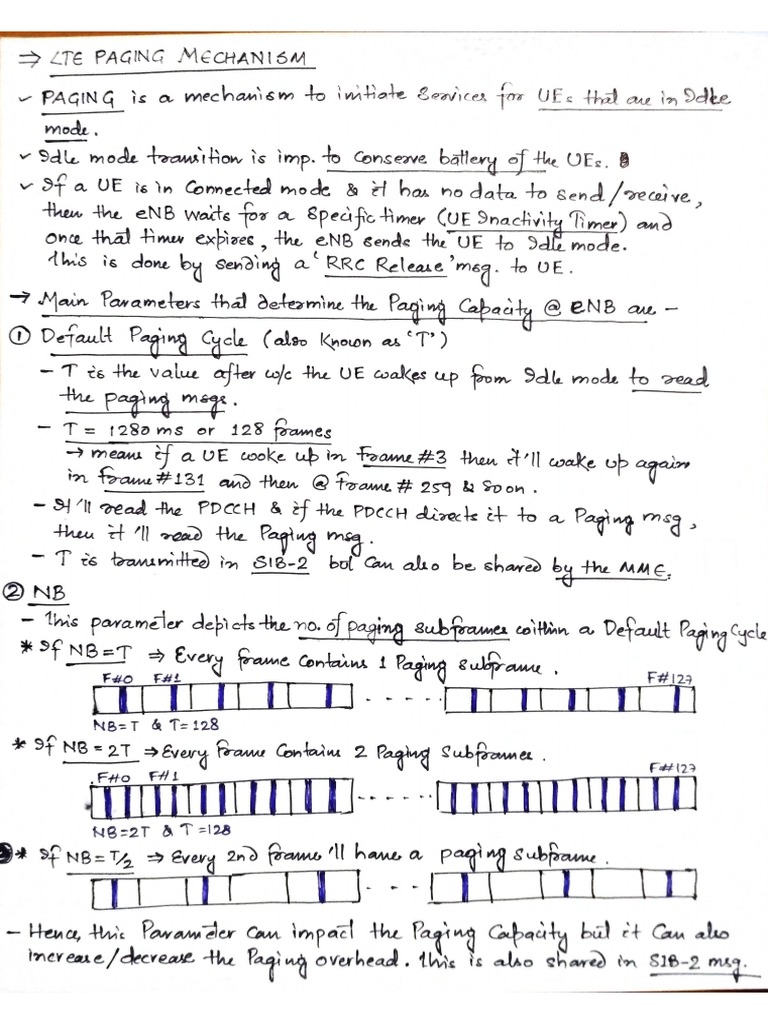 ⇒ LTE PAGING MECHANISM
✓ PAGING is a mechanism to initiate services for UEs that are in Idle
mode.
✓ Idle mode transition is imp. to conserve battery of the UEs.
✓ If a UE is in Connected mode & it has no data to send/receive,
then the eNB waits for a specific timer (UE Inactivity Timer) and
once that timer expires, the eNB sends the UE to Idle mode.
This is done by sending a 'RRC Release' msg. to UE.
→ Main Parameters that determine the Paging Capacity @ eNB are -
① Default Paging Cycle (also known as 'T')
- T is the value after w/c the UE wakes up from Idle mode to read
the paging msgs.
- T = 1280 ms or 128 frames
→ means if a UE woke up in frame #3 then it'll wake up again
in frame #131 and then @ frame # 259 & soon.
- It'll read the PDCCH & if the PDCCH directs it to a Paging msg,
then it'll read the Paging msg.
- T is transmitted in SIB-2 but can also be shared by the MME.
② NB
- This parameter depicts the no. of paging subframes within a Default Paging Cycle
* If NB = T ⇒ Every frame contains 1 Paging subframe.
F#0 F#1 F#127
NB=T & T=128
* If NB = 2T ⇒ Every frame contains 2 Paging subframes.
F#0 F#1 F#127
NB=2T & T=128
* If NB = T/2 ⇒ Every 2nd frame'll have a paging subframe.
- Hence, this Parameter can impact the Paging Capacity but it can also
increase/decrease the Paging overhead. This is also shared in SIB-2 msg.